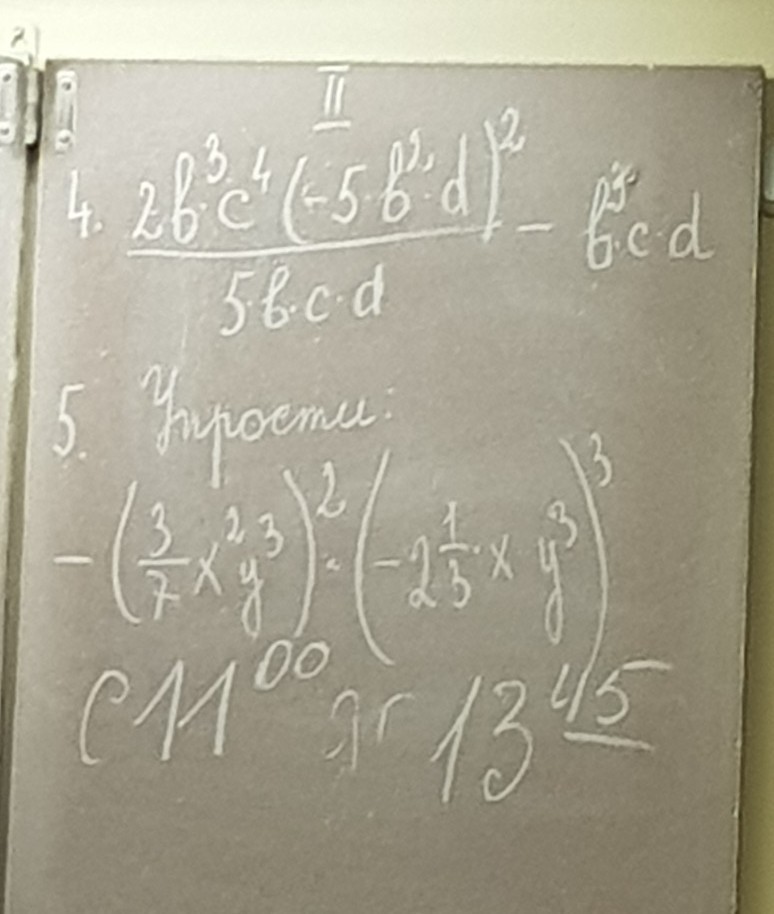 II
4. 2b³·c⁴(-5·b²·d)² / 5·b·c·d - b³·c·d
5. Упрости:
-(3/7 x²y³)²·(-2 1/3·x y³)³
С 11⁰⁰ 13⁴⁵